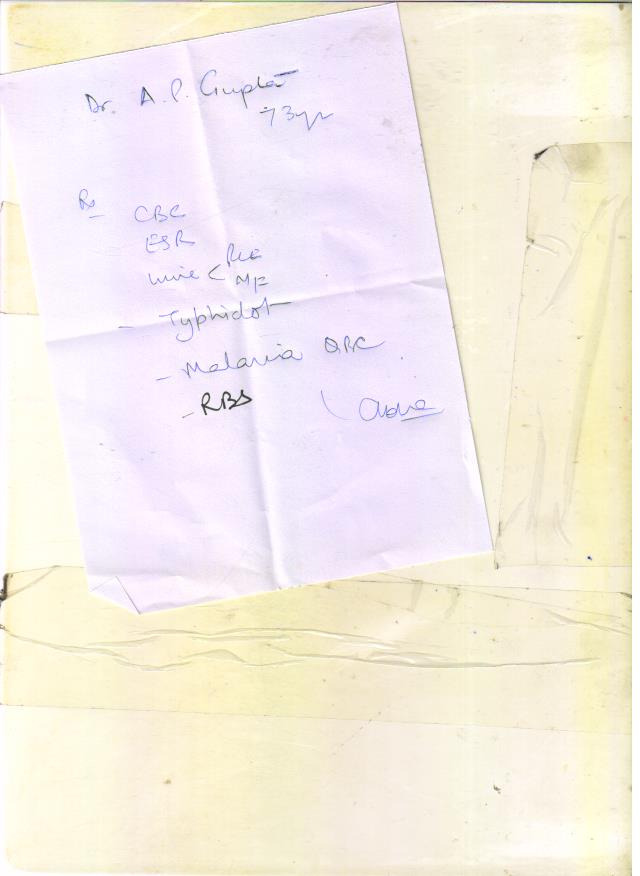 Dr. A. P. Gupta
73yr
Rx
CBC
ESR
Urine < R/E
M/E
- Typhidot
- Malaria QBC
- RBS